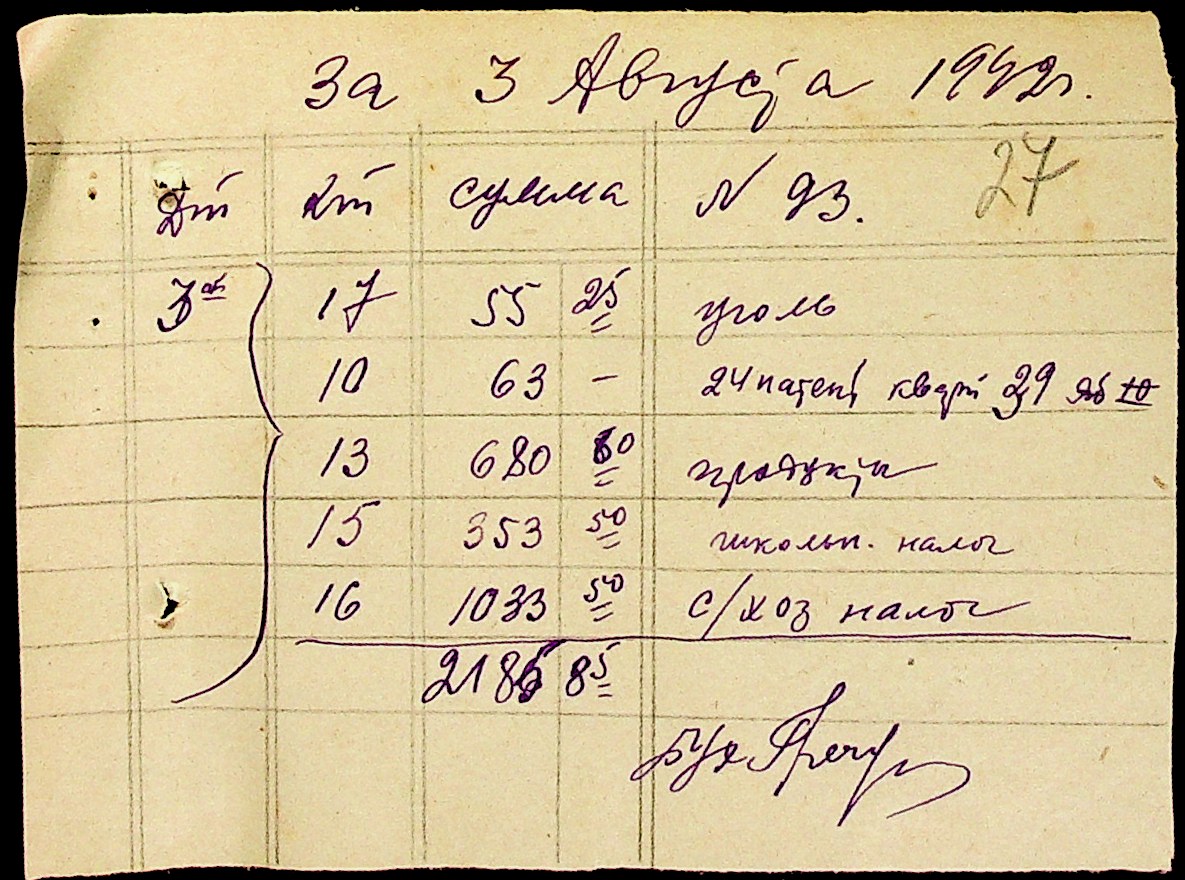 За 3 Августа 1942г.
27
Дт Кт сумма N 93.
3 17 55 25 уголь
10 63 — 24 патент кварт 39
13 680 60 продукты
15 353 50 школьн. налог
16 1033 50 с/хоз налог
2185 85
Бух